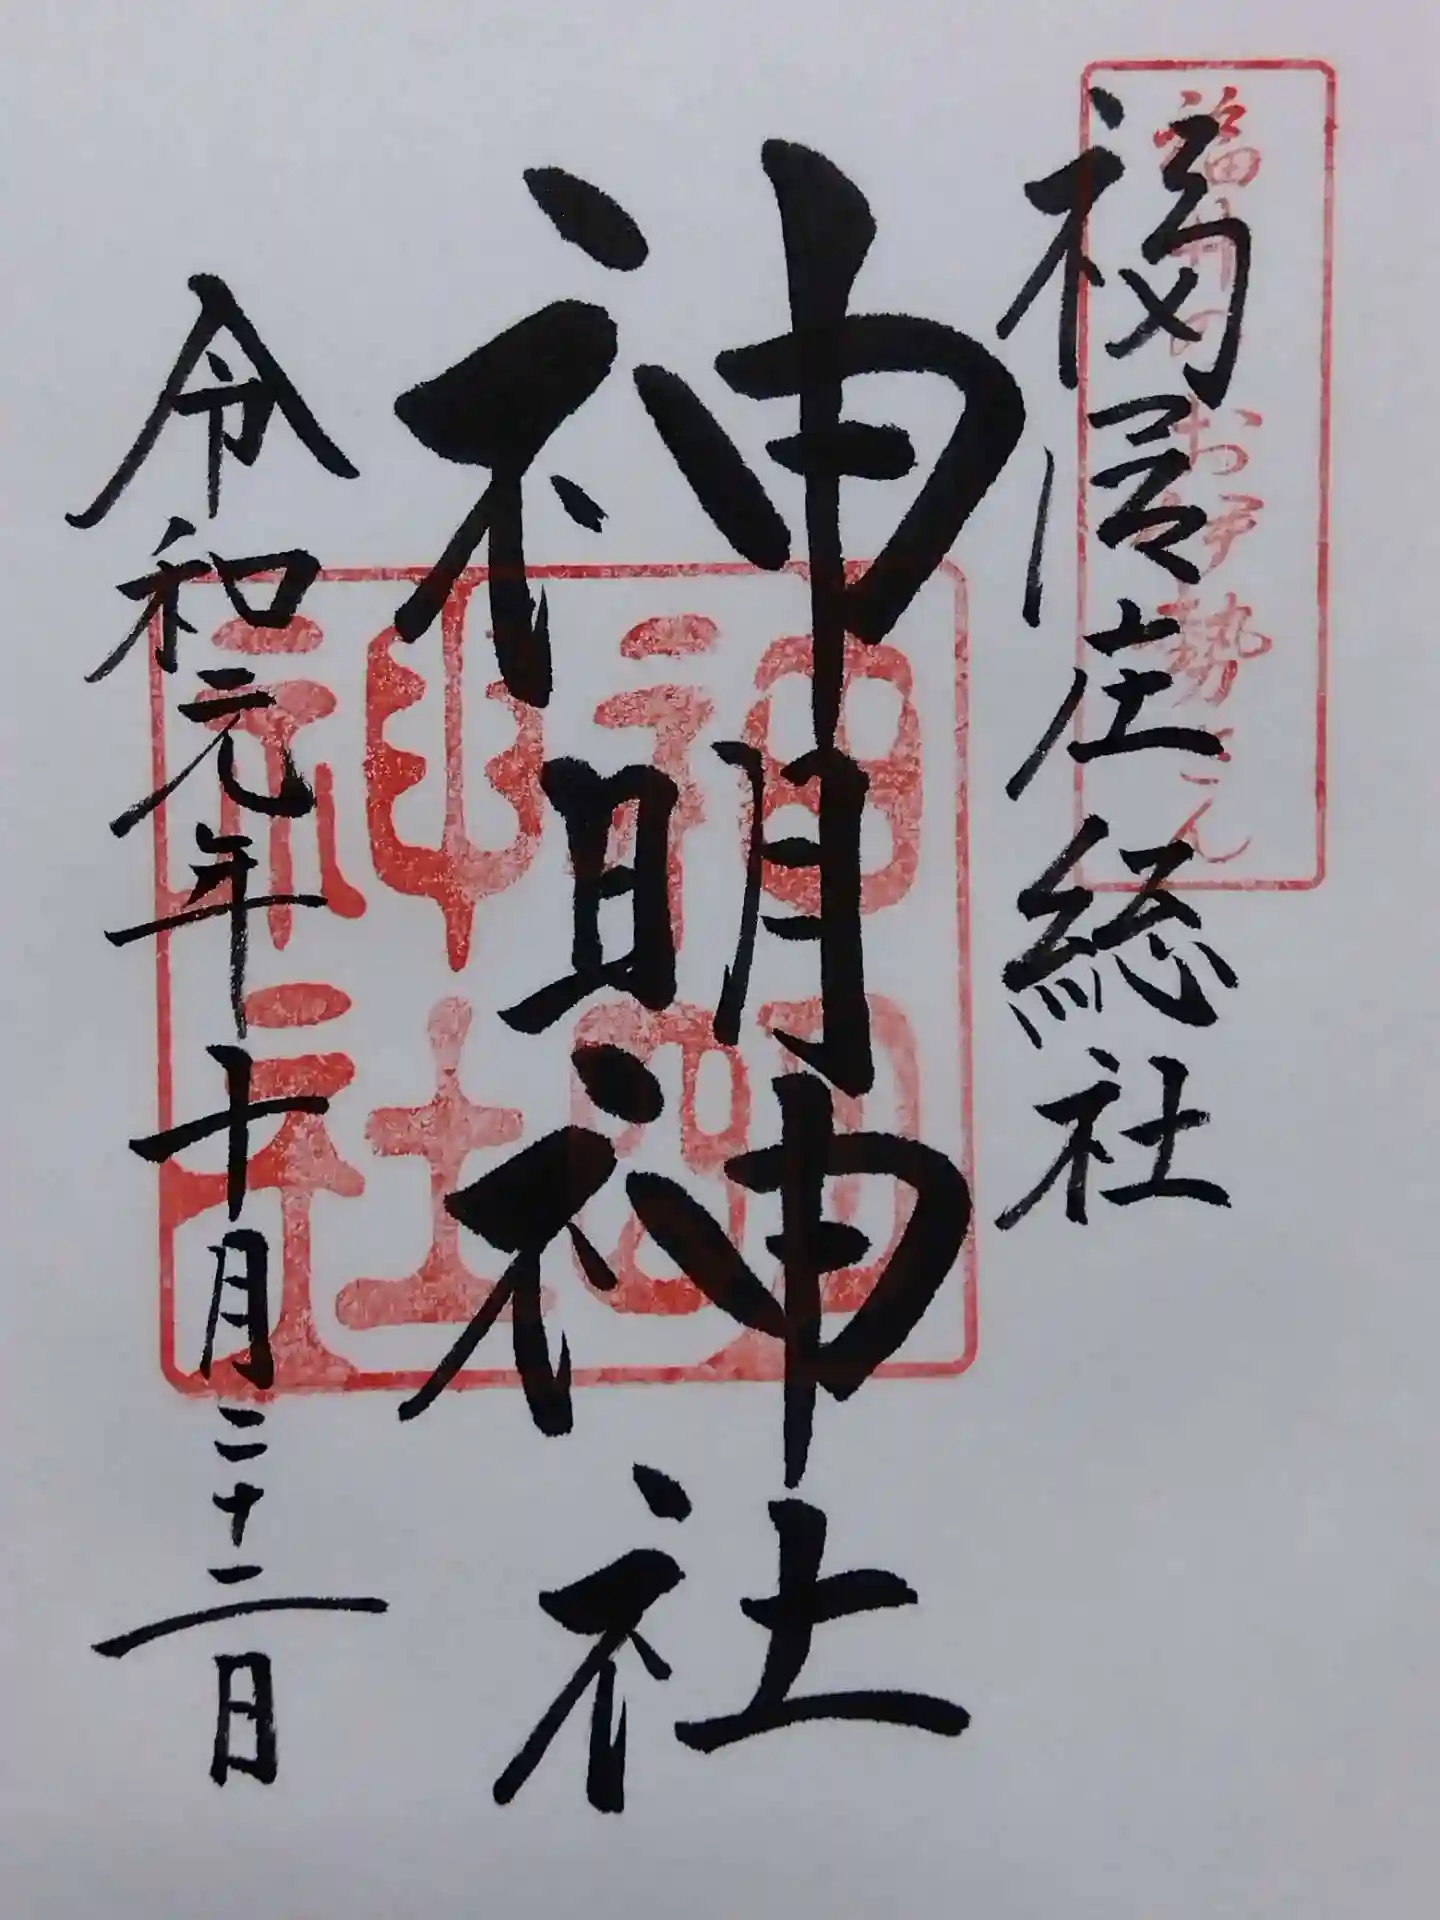 福井のお伊勢さん
福居庄総社
神明神社
神明
神社
令和元年十月二十二日